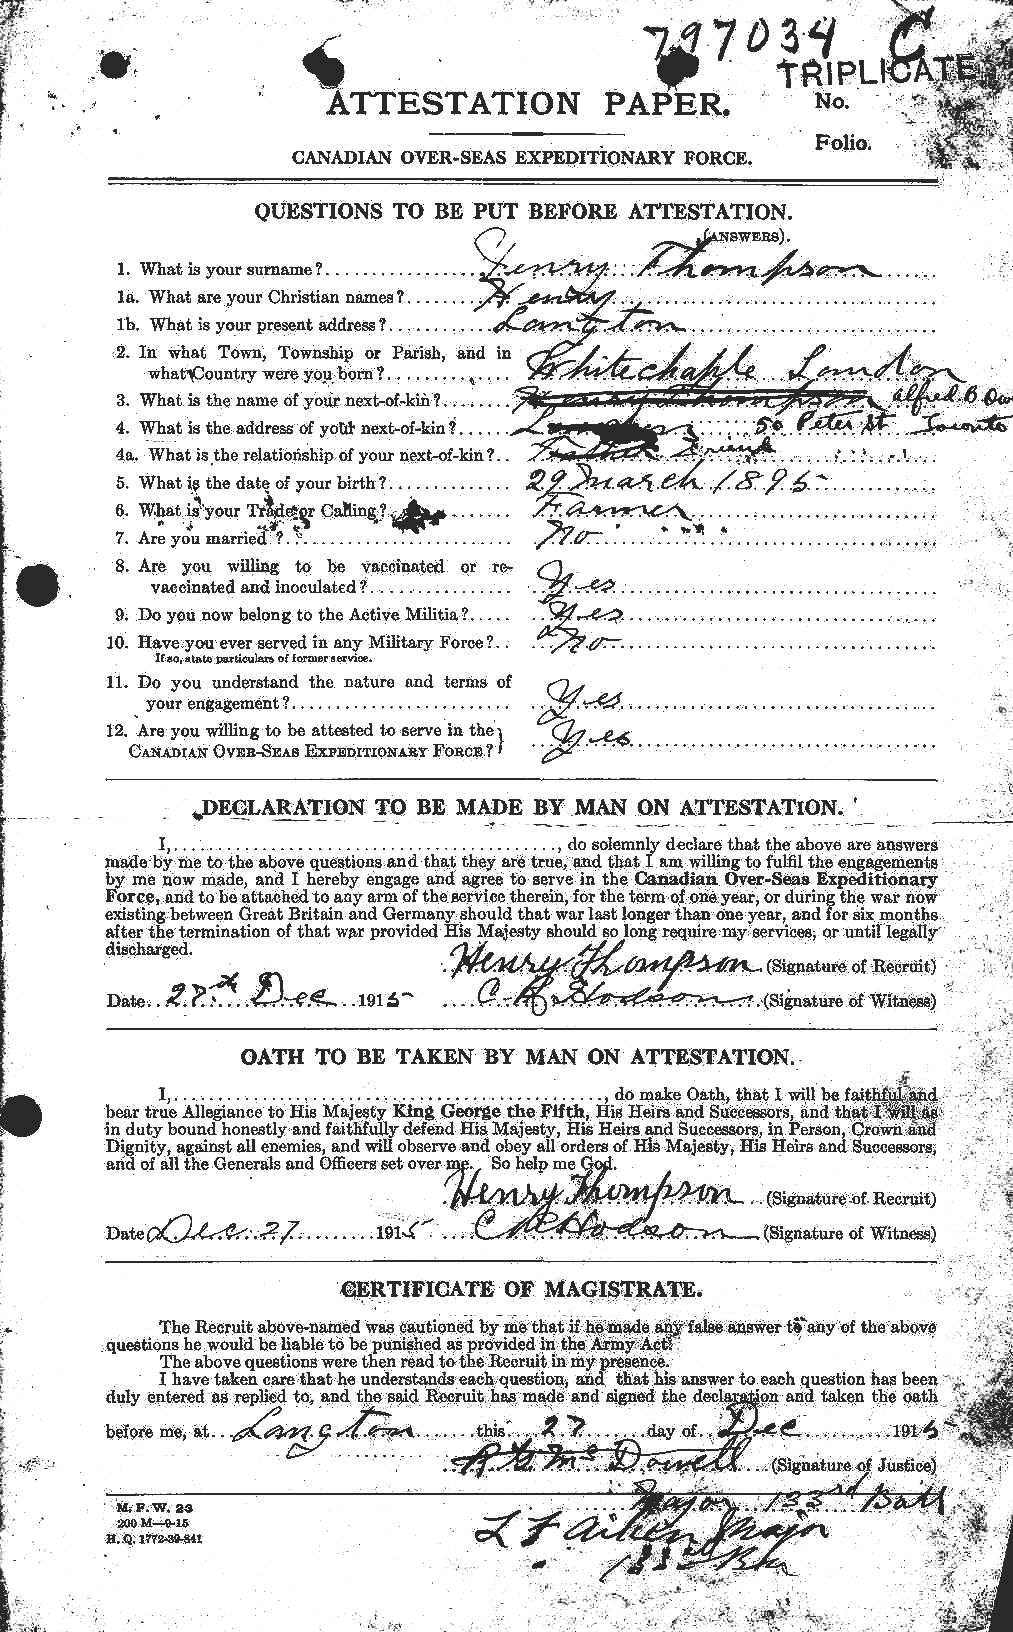 797034 C
TRIPLICATE
ATTESTATION PAPER.
No.
Folio.
CANADIAN OVER-SEAS EXPEDITIONARY FORCE.
QUESTIONS TO BE PUT BEFORE ATTESTATION.
(ANSWERS).
1. What is your surname? Henry Thompson
1a. What are your Christian names? Henry
1b. What is your present address? Langton
2. In what Town, Township or Parish, and in
what Country were you born? Whitechaple London
3. What is the name of your next-of-kin? Henry Thompson alfred B
4. What is the address of your next-of-kin? 50 Peter St Toronto
4a. What is the relationship of your next-of-kin? Father Friend
5. What is the date of your birth? 29 March 1895
6. What is your Trade or Calling? Farmer
7. Are you married? No
8. Are you willing to be vaccinated or re-
vaccinated and inoculated? Yes
9. Do you now belong to the Active Militia? Yes
10. Have you ever served in any Military Force? No
If so, state particulars of former service.
11. Do you understand the nature and terms of
your engagement? Yes
12. Are you willing to be attested to serve in the
CANADIAN OVER-SEAS EXPEDITIONARY FORCE? Yes
DECLARATION TO BE MADE BY MAN ON ATTESTATION.
I, , do solemnly declare that the above are answers
made by me to the above questions and that they are true, and that I am willing to fulfil the engagements
by me now made, and I hereby engage and agree to serve in the Canadian Over-Seas Expeditionary
Force, and to be attached to any arm of the service therein, for the term of one year, or during the war now
existing between Great Britain and Germany should that war last longer than one year, and for six months
after the termination of that war provided His Majesty should so long require my services, or until legally
discharged.
Henry Thompson (Signature of Recruit)
Date 27th Dec 1915 C R Hodson (Signature of Witness)
OATH TO BE TAKEN BY MAN ON ATTESTATION.
I, , do make Oath, that I will be faithful and
bear true Allegiance to His Majesty King George the Fifth, His Heirs and Successors, and that I will as
in duty bound honestly and faithfully defend His Majesty, His Heirs and Successors, in Person, Crown and
Dignity, against all enemies, and will observe and obey all orders of His Majesty, His Heirs and Successors,
and of all the Generals and Officers set over me. So help me God.
Henry Thompson (Signature of Recruit)
Date Dec 27 1915 C R Hodson (Signature of Witness)
CERTIFICATE OF MAGISTRATE.
The Recruit above-named was cautioned by me that if he made any false answer to any of the above
questions he would be liable to be punished as provided in the Army Act.
The above questions were then read to the Recruit in my presence.
I have taken care that he understands each question, and that his answer to each question has been
duly entered as replied to, and the said Recruit has made and signed the declaration and taken the oath
before me, at Langton this 27 day of Dec 1915
McDowell (Signature of Justice)
Major 133rd Batt
M. F. W. 23
200 M—9-15
H. Q. 1772-39-841
L F Aiken Major
133rd Bn